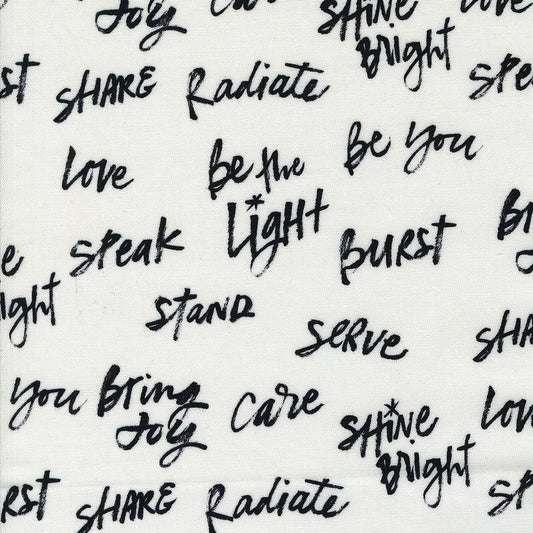 Joy
Care
SHINE
Bright
Love
ST
SHARE
Radiate
Spe
Love
Be the
Light
Be You
Speak
BURST
Br
e
ight
STAND
Serve
SHA
You
Bring
Joy
Care
SHINE
Bright
Lov
RST
SHARE
Radiate
Sp